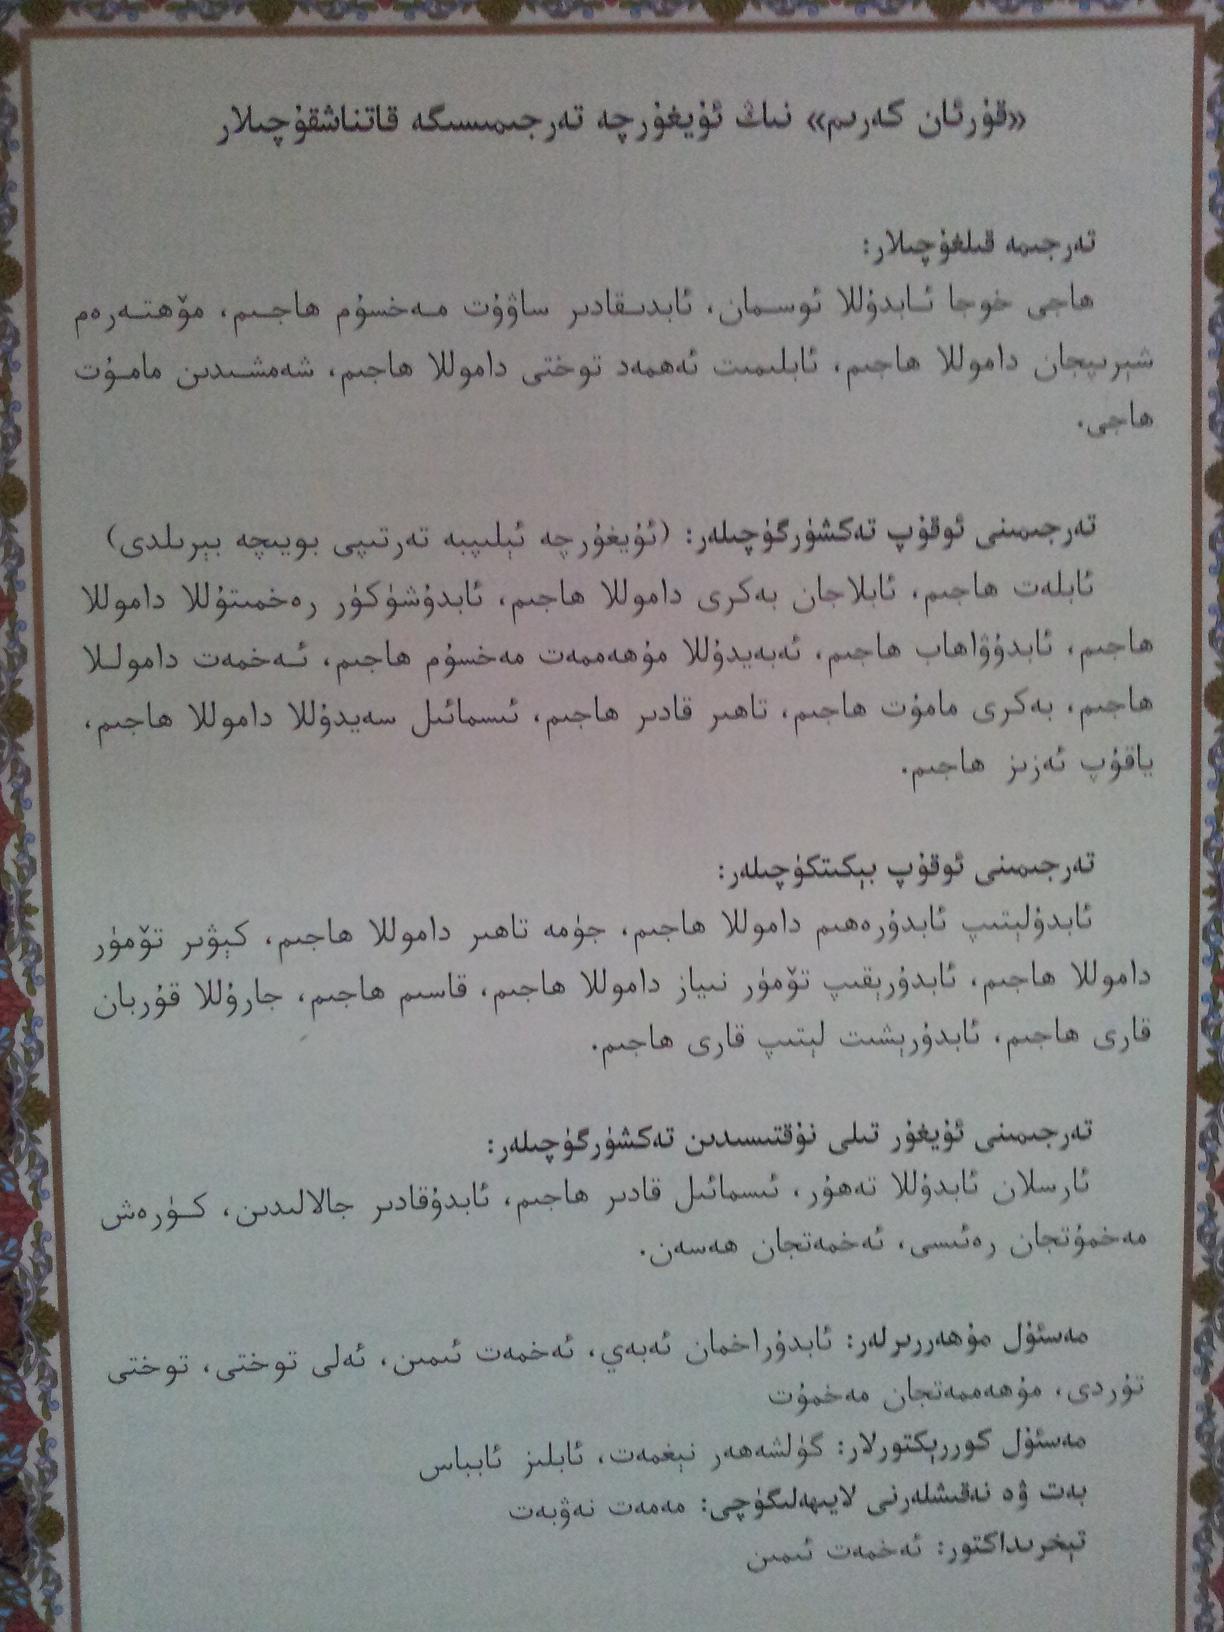 «قۇرئان كەرىم» نىڭ ئۇيغۇرچە تەرجىمىسىگە قاتناشقۇچىلار
تەرجىمە قىلغۇچىلار:
ھاجى خوجا ئابدۇللا ئوسمان، ئابدىقادىر ساۋۇت مەخسۇم ھاجىم، مۆھتەرەم
شېرىپجان داموللا ھاجىم، ئابلىمىت ئەھمەد توختى داموللا ھاجىم، شەمشىدىن مامۇت
ھاجى.
تەرجىمىنى ئوقۇپ تەكشۈرگۈچىلەر: (ئۇيغۇرچە ئېلىپبە تەرتىپى بويىچە بېرىلدى)
ئابلەت ھاجىم، ئابلاجان بەكرى داموللا ھاجىم، ئابدۇشۈكۈر رەخمىتۇللا داموللا
ھاجىم، ئابدۇۋاھاب ھاجىم، ئەبەيدۇللا مۇھەممەت مەخسۇم ھاجىم، ئەخمەت داموللا
ھاجىم، بەكرى مامۇت ھاجىم، تاھىر قادىر ھاجىم، ئىسمائىل سەيدۇللا داموللا ھاجىم،
ياقۇپ ئەزىز ھاجىم.
تەرجىمىنى ئوقۇپ بېكىتكۈچىلەر:
ئابدۇلېتىپ ئابدۇرەھىم داموللا ھاجىم، جۈمە تاھىر داموللا ھاجىم، كېۋىر تۆمۈر
داموللا ھاجىم، ئابدۇرېقىپ تۆمۈر نىياز داموللا ھاجىم، قاسىم ھاجىم، جارۇللا قۇربان
قارى ھاجىم، ئابدۇرېشىت لېتىپ قارى ھاجىم.
تەرجىمىنى ئۇيغۇر تىلى نۇقتىسىدىن تەكشۈرگۈچىلەر:
ئارسلان ئابدۇللا تەھۇر، ئىسمائىل قادىر ھاجىم، ئابدۇقادىر جالالىدىن، كۈرەش
مەخمۇتجان رەئىسى، ئەخمەتجان ھەسەن.
مەسئۇل مۇھەررىرلەر: ئابدۇراخمان ئەبەي، ئەخمەت ئىمىن، ئەلى توختى، توختى
تۇردى، مۇھەممەتجان مەخمۇت
مەسئۇل كوررېكتورلار: گۈلشەھەر نېغمەت، ئابلىز ئابباس
بەت ۋە نەقىشلەرنى لايىھەلىگۈچى: مەمەت نەۋبەت
تېخرىداكتور: ئەخمەت ئىمىن